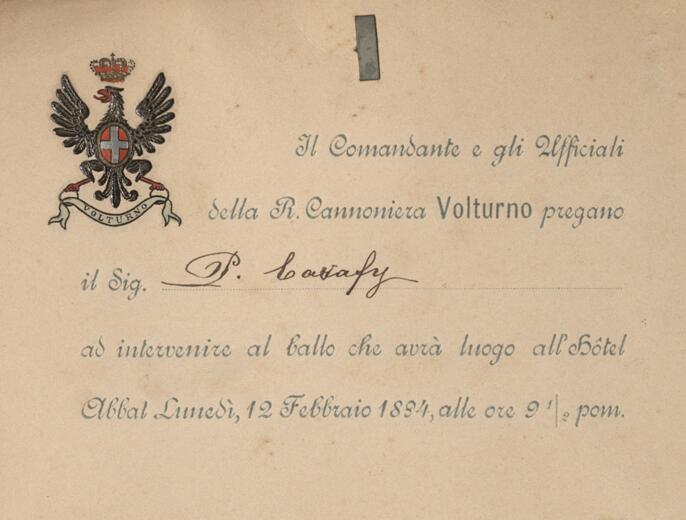 VOLTURNO
Il Comandante e gli Ufficiali
della R. Cannoniera Volturno pregano
il Sig. P. Cavafy
ad intervenire al ballo che avrà luogo all'Hôtel
Abbat Lunedì, 12 Febbraio 1894, alle ore 9 1/2 pom.